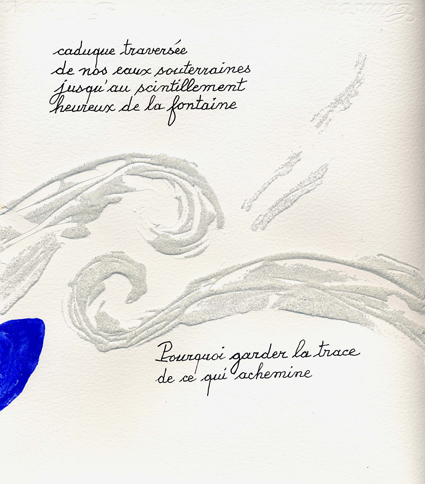 caduque traversée
de nos eaux souterraines
jusqu'au scintillement
heureux de la fontaine
Pourquoi garder la trace
de ce qui achemine